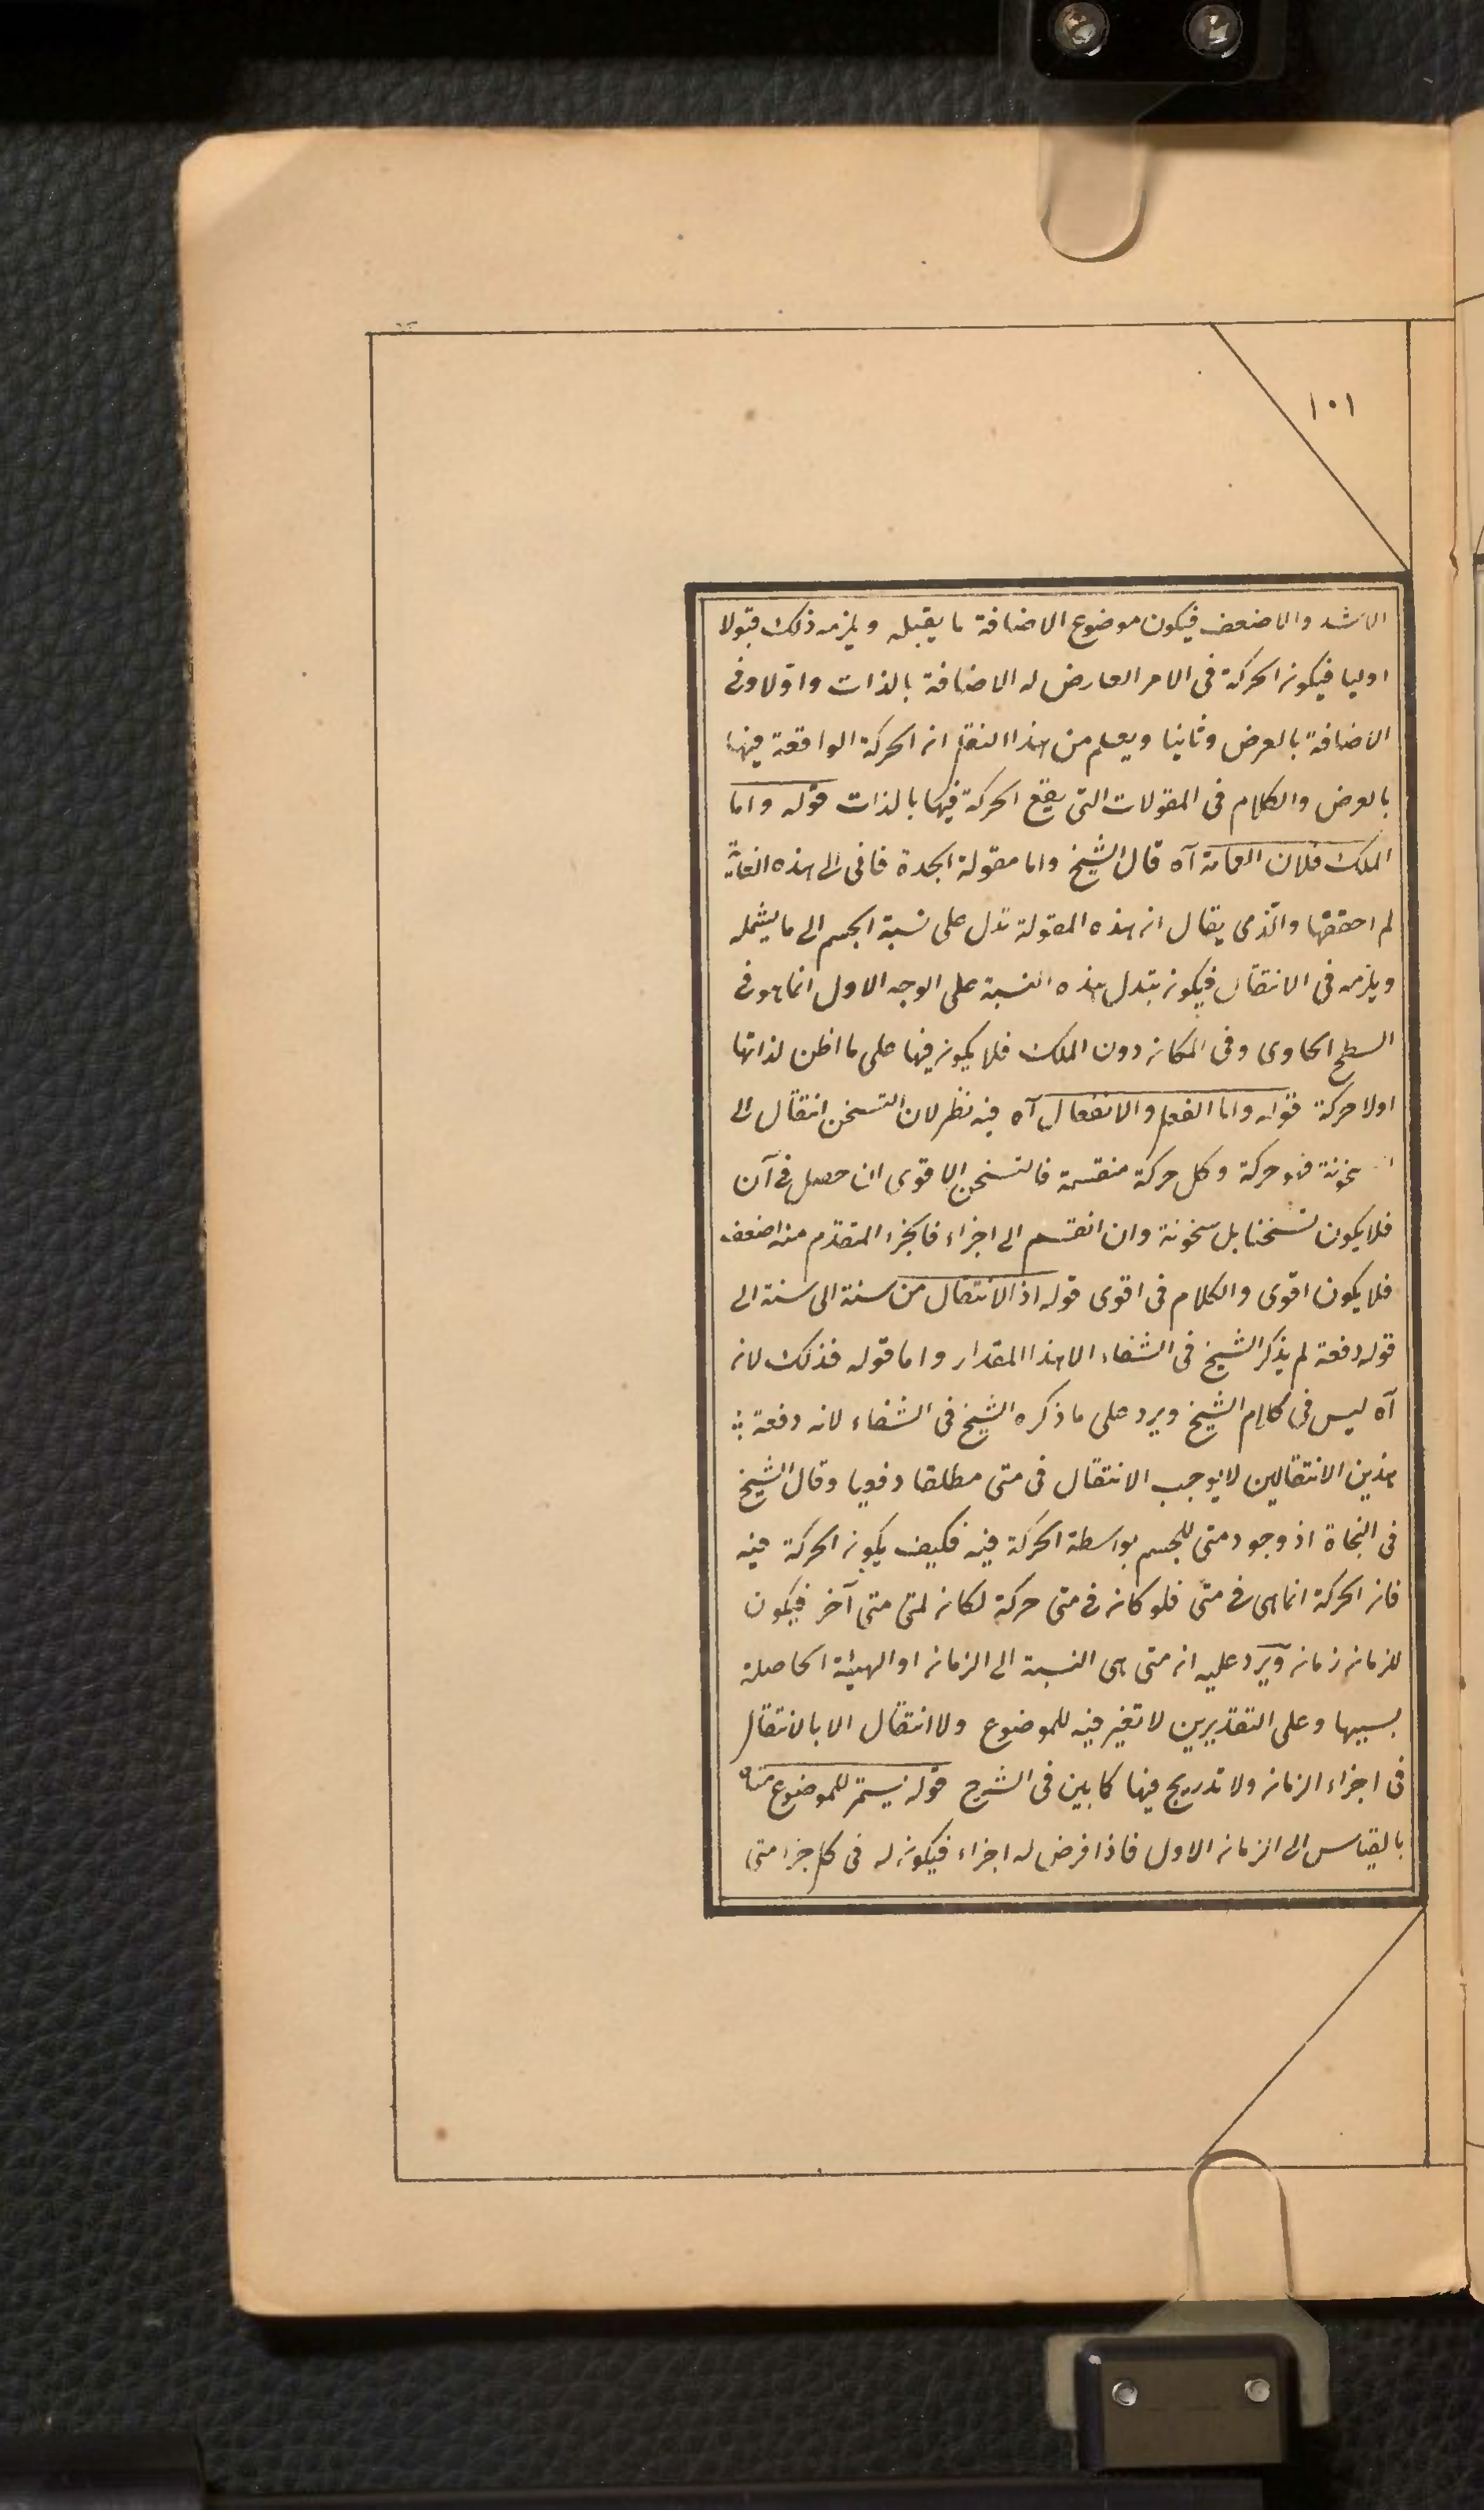 ١٠١
الاشد والاضعف فيكون موضوع الاضافة ما يقبله ويلزمه ذلك قبولا
اوليا فيكون الحركة فى الامر العارض له الاضافة بالذات واولا وفى
الاضافة بالعرض وثانيا ويعلم من هذا النقل ان الحركة الواقعة فيها
بالعرض والكلام فى المقولات التى يقع الحركة فيها بالذات قوله واما
الملك فلان العمامة آه قال الشيخ واما مقولة الجدة فانى الى هذه الغاية
لم احققها والذى يقال ان هذه المقولة تدل على نسبة الجسم الى ما يشمله
ويلزمه فى الانتقال فيكون تبدل هذه النسبة على الوجه الاول انما هو فى
السطح الحاوى وفى المكان دون الملك فلا يكون فيها على ما اظن لذاتها
اولا حركة قوله واما الفعل والانفعال آه فيه نظر لان التسخن انتقال الى
سخونة فهو حركة وكل حركة منقسمة فالتسخن الاقوى ان حصل فى آن
فلا يكون تسخنا بل سخونة وان انقسم الى اجزاء فالجزء المتقدم منه اضعف
فلا يكون اقوى والكلام فى اقوى قوله اذ الانتقال من سنة الى سنة الى
قوله دفعة لم يذكر الشيخ فى الشفاء الا هذا المقدار واما قوله فذلك لانه
آه ليس فى كلام الشيخ ويرد على ما ذكره الشيخ فى الشفاء لانه دفعة
هذين الانتقالين لا يوجب الانتقال فى متى مطلقا دفعيا وقال الشيخ
فى النجاة اذ وجود متى للجسم بواسطة الحركة فيه فكيف يكون الحركة فيه
فان الحركة انما هى فى متى فلو كان فى متى حركة لكان لمتى متى آخر فيكون
للزمان زمان ويرد عليه ان متى هى النسبة الى الزمان او الهيئة الحاصلة
بسببها وعلى التقديرين لا تغير فيه للموضوع ولا انتقال الا بالانتقال
فى اجزاء الزمان ولا تدريج فيها كما بين فى الشرح قوله يستمر للموضوع متاه
بالقياس الى الزمان الاول فاذا فرض له اجزاء فيكون له فى كل جزء متى